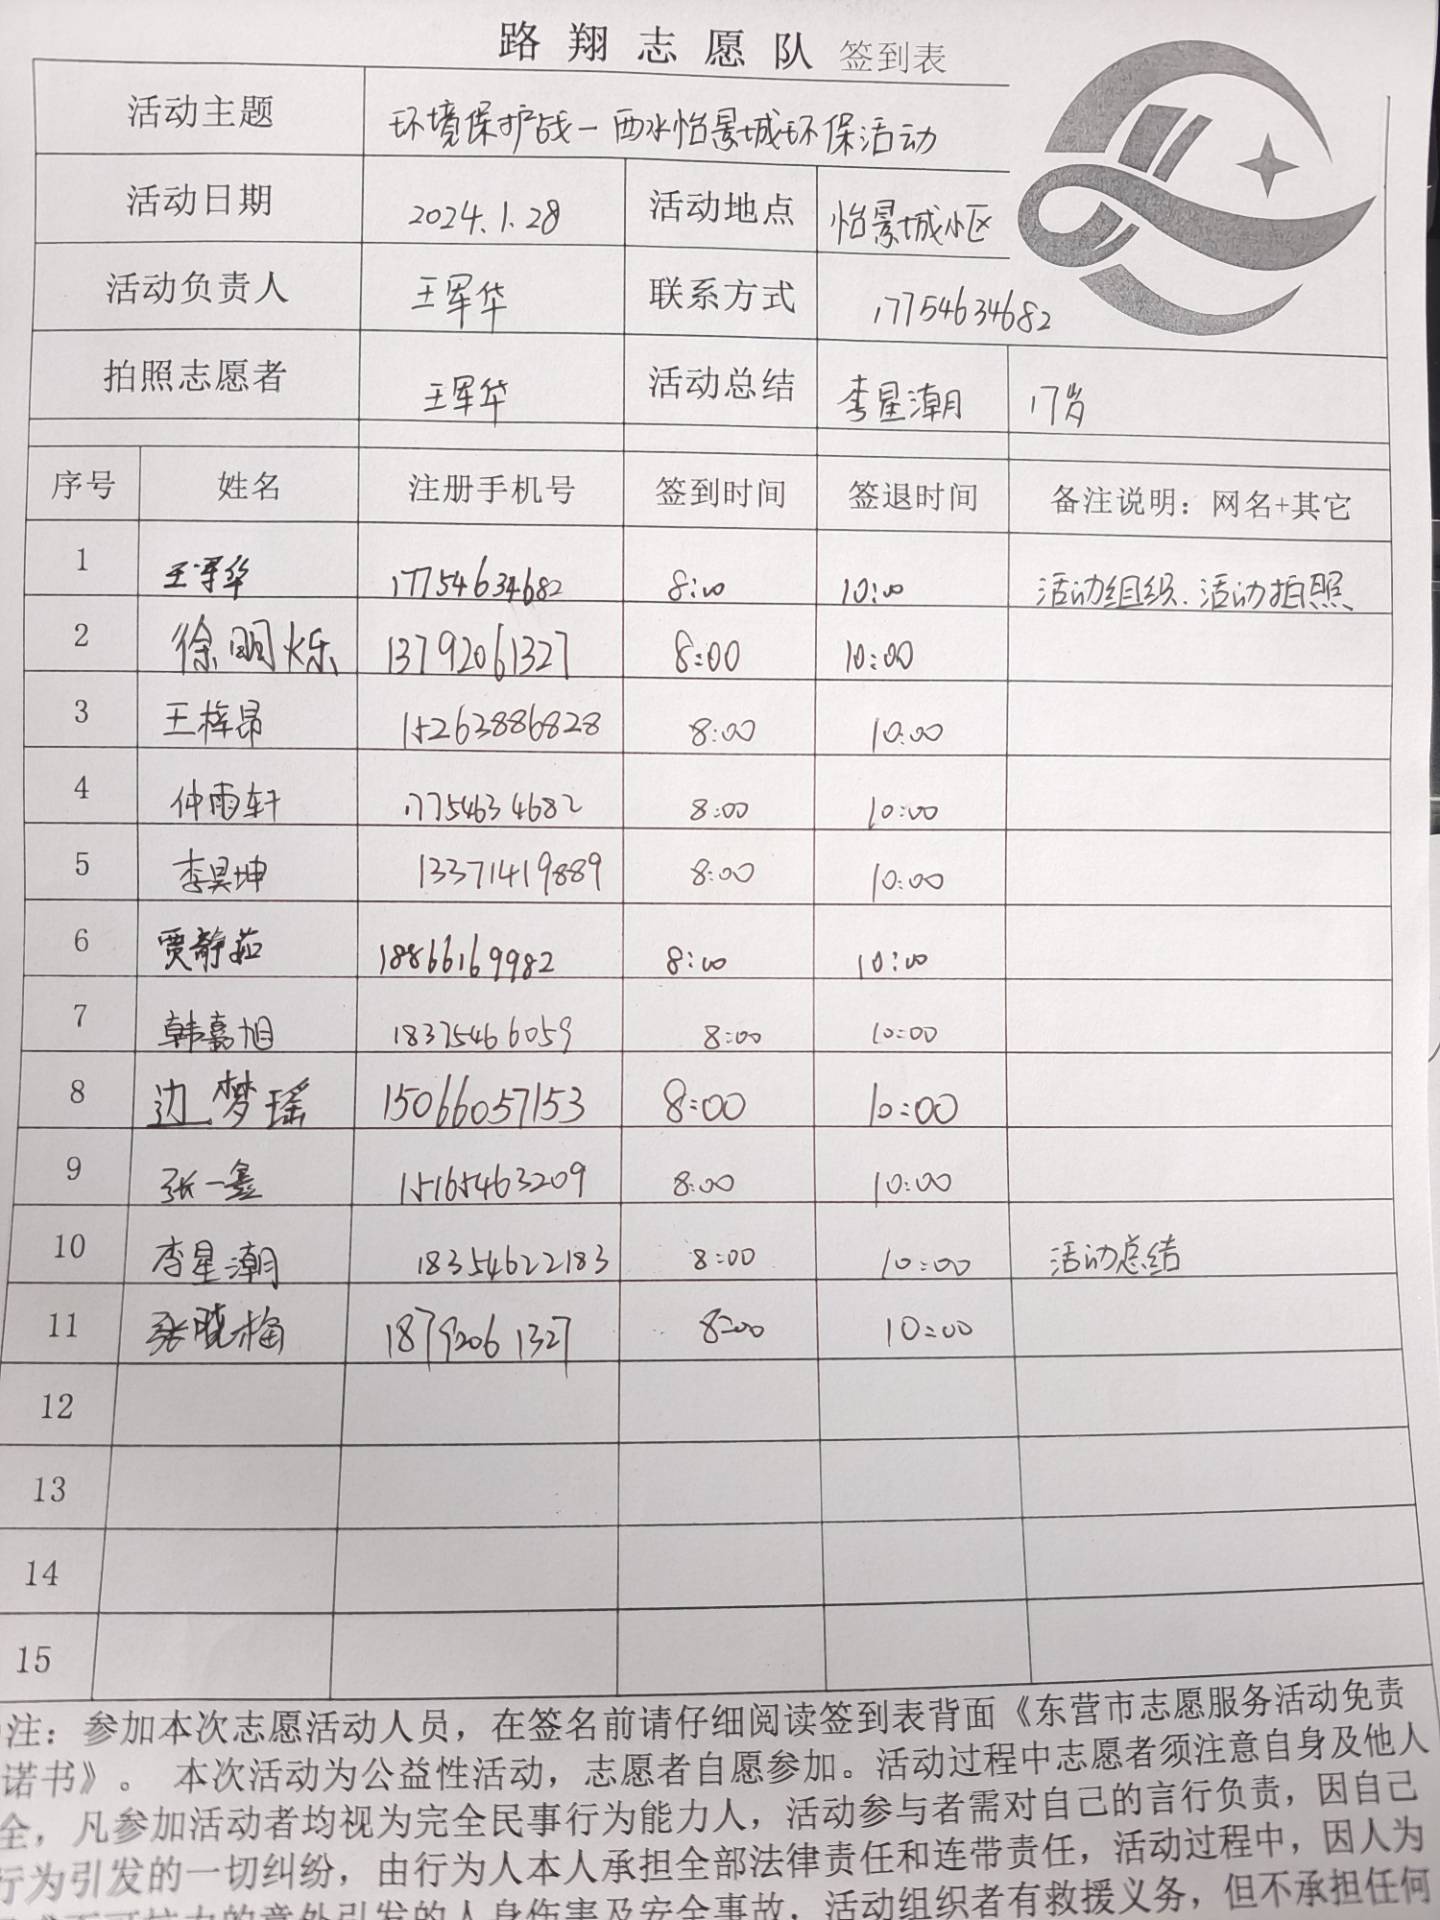 路翔志愿队 签到表
活动主题 环境保护战一西水怡景城环保活动
活动日期 2024.1.28 活动地点 怡景城小区
活动负责人 王军华 联系方式 17754634682
拍照志愿者 王军华 活动总结 李星潮 17岁
序号 姓名 注册手机号 签到时间 签退时间 备注说明：网名+其它
1 王军华 17754634682 8:00 10:00 活动组织、活动拍照
2 徐明烁 13792061327 8:00 10:00
3 王梓昂 15263886828 8:00 10:00
4 仲雨轩 17754634682 8:00 10:00
5 李昊坤 13371419889 8:00 10:00
6 贾静茹 18866169982 8:00 10:00
7 韩嘉旭 18375466059 8:00 10:00
8 边梦瑶 15066057153 8:00 10:00
9 张一鑫 15165463209 8:00 10:00
10 李星潮 18354622183 8:00 10:00 活动总结
11 张晓梅 18792061327 8:00 10:00
12
13
14
15
注：参加本次志愿活动人员，在签名前请仔细阅读签到表背面《东营市志愿服务活动免责
诺书》。 本次活动为公益性活动，志愿者自愿参加。活动过程中志愿者须注意自身及他人
全，凡参加活动者均视为完全民事行为能力人，活动参与者需对自己的言行负责，因自己
行为引发的一切纠纷，由行为人本人承担全部法律责任和连带责任，活动过程中，因人为
不可抗力的意外引发的人身伤害及安全事故，活动组织者有救援义务，但不承担任何